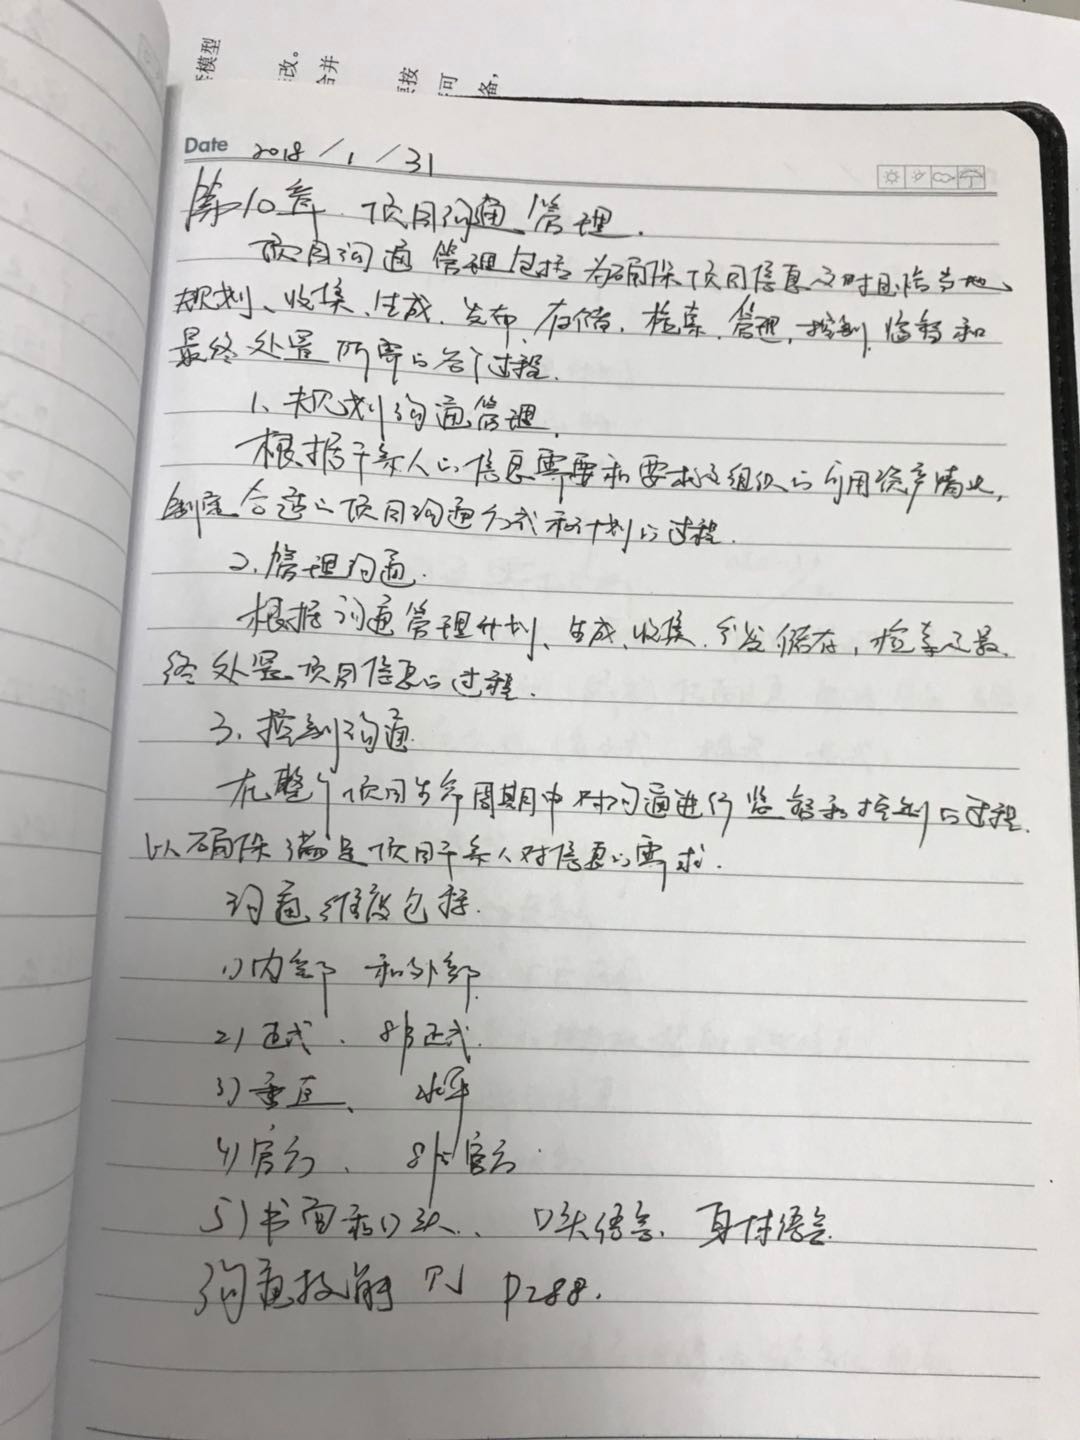 模型
改。
合并
按
可
备，
Date 2018/1/31
第10章 项目沟通管理.
项目沟通管理包括为确保项目信息及时且恰当地、
规划、收集、生成、发布、存储、检索、管理、控制、监督和
最终处置所需的各个过程.
1、规划沟通管理.
根据干系人的信息需要和要求及组织的可用资产情况,
制定合适的项目沟通方式和计划的过程.
2、管理沟通.
根据沟通管理计划、生成、收集、分发、储存、检索及最
终处置项目信息的过程.
3、控制沟通
在整个项目生命周期中对沟通进行监督和控制的过程.
以确保满足项目干系人对信息的需求.
沟通维度包括.
1)内部 和外部.
2)正式、非正式.
3)垂直、 水平
4)官方、 非官方.
5)书面和口头、 口头语言、身体语言.
沟通技能 则 P288.